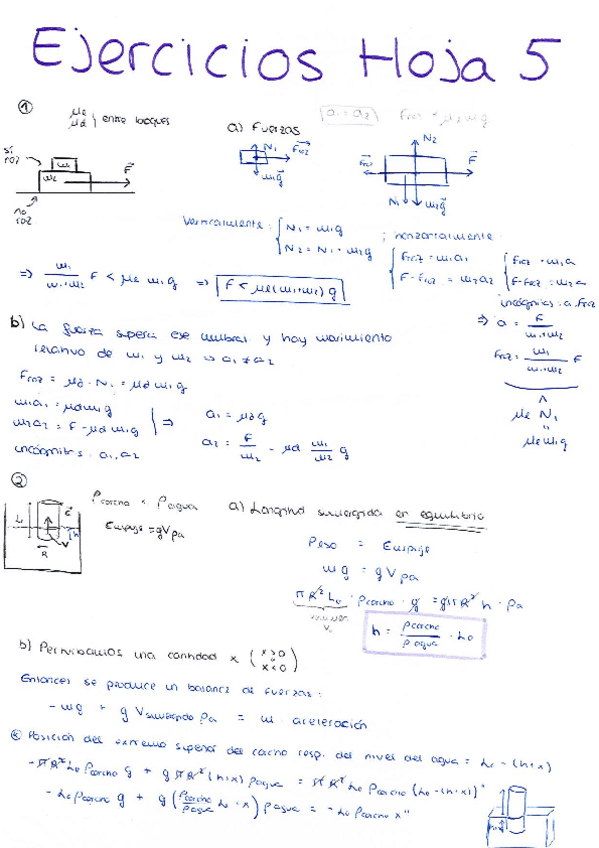 Ejercicios Hoja 5
①
μe
μd } entre bloques
a) Fuerzas
a₁ = a₂
Froz < μe m₁g
sí roz
m₁
m₂
F
no roz
N₁
Froz
m₁g
N₂
Froz
F
N₁
m₂g
Verticalmente: { N₁ = m₁g
N₂ = N₁ + m₂g
; horizontalmente:
Froz = m₁a₁
F - Froz = m₂a₂
Froz = m₁a
F - Froz = m₂a
incógnitas: a, Froz
⇒ m₁/(m₁+m₂) F < μe m₁g ⇒ F < μe(m₁+m₂)g
⇒ a = F/(m₁+m₂)
Froz = m₁/(m₁+m₂) F
∧
μe N₁
"
μe m₁g
b) La fuerza supera ese umbral y hay movimiento
relativo de m₁ y m₂ ⇒ a₁ ≠ a₂
Froz = μd · N₁ = μd m₁g
m₁a₁ = μd m₁g
m₂a₂ = F - μd m₁g
⇒ a₁ = μd g
a₂ = F/m₂ - μd m₁/m₂ g
incógnitas: a₁, a₂
②
L₀
E
h
R
V
ρcorcho < ρagua
Empuje = gVρa
a) Longitud sumergida en equilibrio
Peso = Empuje
mg = gVρa
πR²L₀ · ρcorcho · g = gπR² h · ρa
h = ρcorcho/ρagua · L₀
b) Perturbamos una cantidad x (x>0 o x<0)
Entonces se produce un balance de fuerzas:
-mg + g Vsumergido ρa = m · aceleración
Posición del extremo superior del corcho resp. del nivel del agua = L₀ - (h+x)
-πR² L₀ ρcorcho g + g πR² (h+x) ρagua = πR² L₀ ρcorcho (L₀ - (h+x))"
-L₀ ρcorcho g + g (ρcorcho/ρagua L₀ + x) ρagua = -L₀ ρcorcho x"